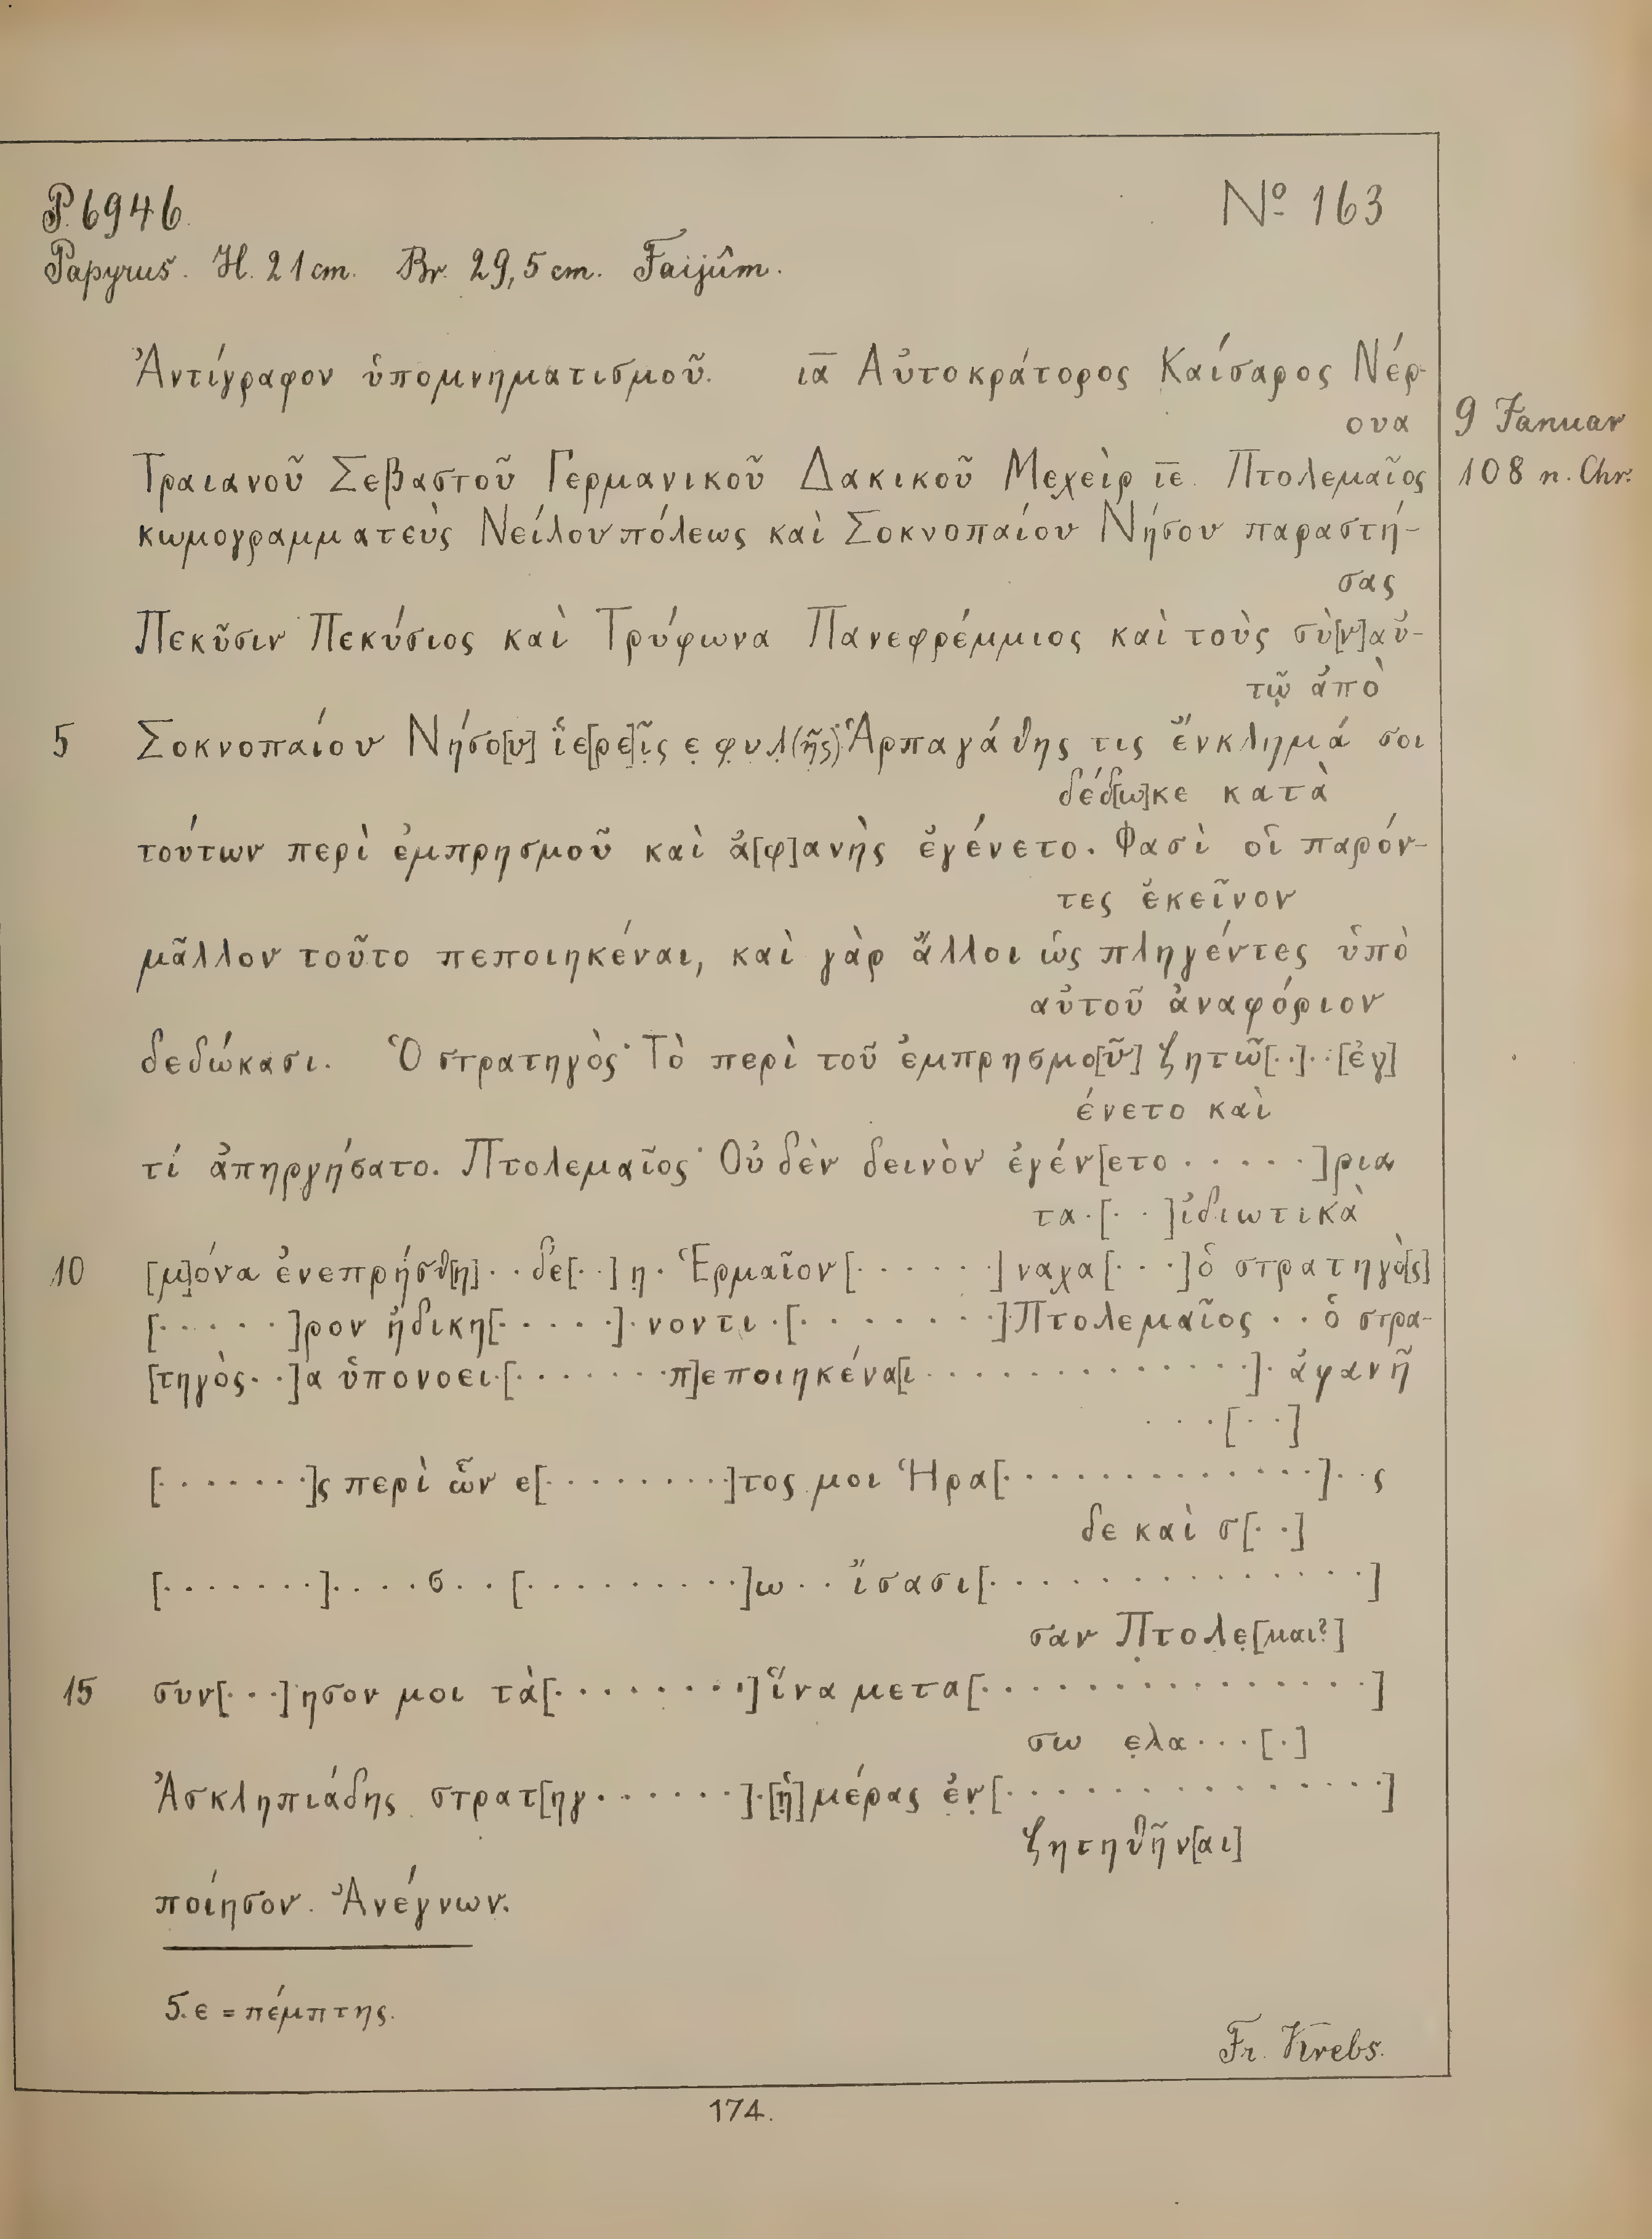 P. 6946. Nº 163
Papyrus. H. 21 cm. Br. 29,5 cm. Faijûm.
Ἀντίγραφον ὑπομνηματισμοῦ. ι̅α̅ Αὐτοκράτορος Καίσαρος Νέρ-
ουα
9 Januar
Τραιανοῦ Σεβαστοῦ Γερμανικοῦ Δακικοῦ Μεχεὶρ ι̅ε̅. Πτολεμαῖος
108 n. Chr.
κωμογραμματεὺς Νείλου πόλεως καὶ Σοκνοπαίου Νήσου παραστή-
σας
Πεκῦσιν Πεκύσιος καὶ Τρύφωνα Πανεφρέμμιος καὶ τοὺς σὺ[ν] αὐ-
τῷ ἀπὸ
5 Σοκνοπαίου Νήσο[υ] ἱε[ρε]ῖ̣ς ε̣ φ̣υ̣λ̣(ῆς)· Ἁρπαγάθης τις ἔνκλημά σοι
δέδ[ω]κε κατὰ
τούτων περὶ ἐμπρησμοῦ καὶ ἀ[φ]ανὴς ἐγένετο. Φασὶ οἱ παρόν-
τες ἐκεῖνον
μᾶλλον τοῦτο πεποιηκέναι, καὶ γὰρ ἄλλοι ὡς πληγέντες ὑπὸ
αὐτοῦ ἀναφόριον
δεδώκασι. Ὁ στρατηγὸς· Τὸ περὶ τοῦ ἐμπρησμο[ῦ] ζητῶ[··]··[ἐγ]
ένετο καὶ
τί ἀπηργήσατο. Πτολεμαῖος· Οὐδὲν δεινὸν ἐγέν[ετο·····]ρια
τα·[··]ἰδιωτικὰ
10 [μ]όνα ἐνεπρήσθ[η]··δε[··]η̣· Ἑρμαῖον[······]ναχα[···]ὁ στρατηγὸ[ς]
[·····]ρον ἠδικη[·····]·νοντι·[·······]Πτολεμαῖος··ὁ στρα-
[τηγὸς··]α ὑπονοει·[·······π]εποιηκένα[ι············]·ἀφανῆ
···[··]
[·······]ς περὶ ὧν ε[·········]τος μοι Ἡρα[············]··ς
δε καὶ σ[··]
[·······]····σ··[·········]ω··ἴσασι[··············]
σαν Π̣τολε̣[μαι?]
15 συν[···]ησον μοι τὰ[········]ἵνα μετα[··············]
σω ε̣λα···[·]
Ἀσκληπιάδης στρατ[ηγ······]·[ἡ]μέρας ἐν̣[·············]
ζητηθῆν[αι]
ποίησον. Ἀνέγνων.
5. ε = πέμπτης.
Fr. Krebs.
174.